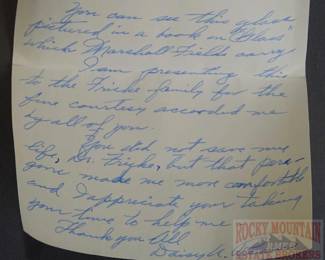 You can see this glass
pictured in a book on "Glass"
which Marshall Fields carry
I am presenting this
to the Fricke family for the
fine courtesy accooded me
by all of you.
You did not save my
life, Dr. Fricke, but that
made me more comfortable
and I appriciate your taking
your time to help me
Thank you All
Daisy
ROCKY MOUNTAIN
RMES
ESTATE BROKERS INC.